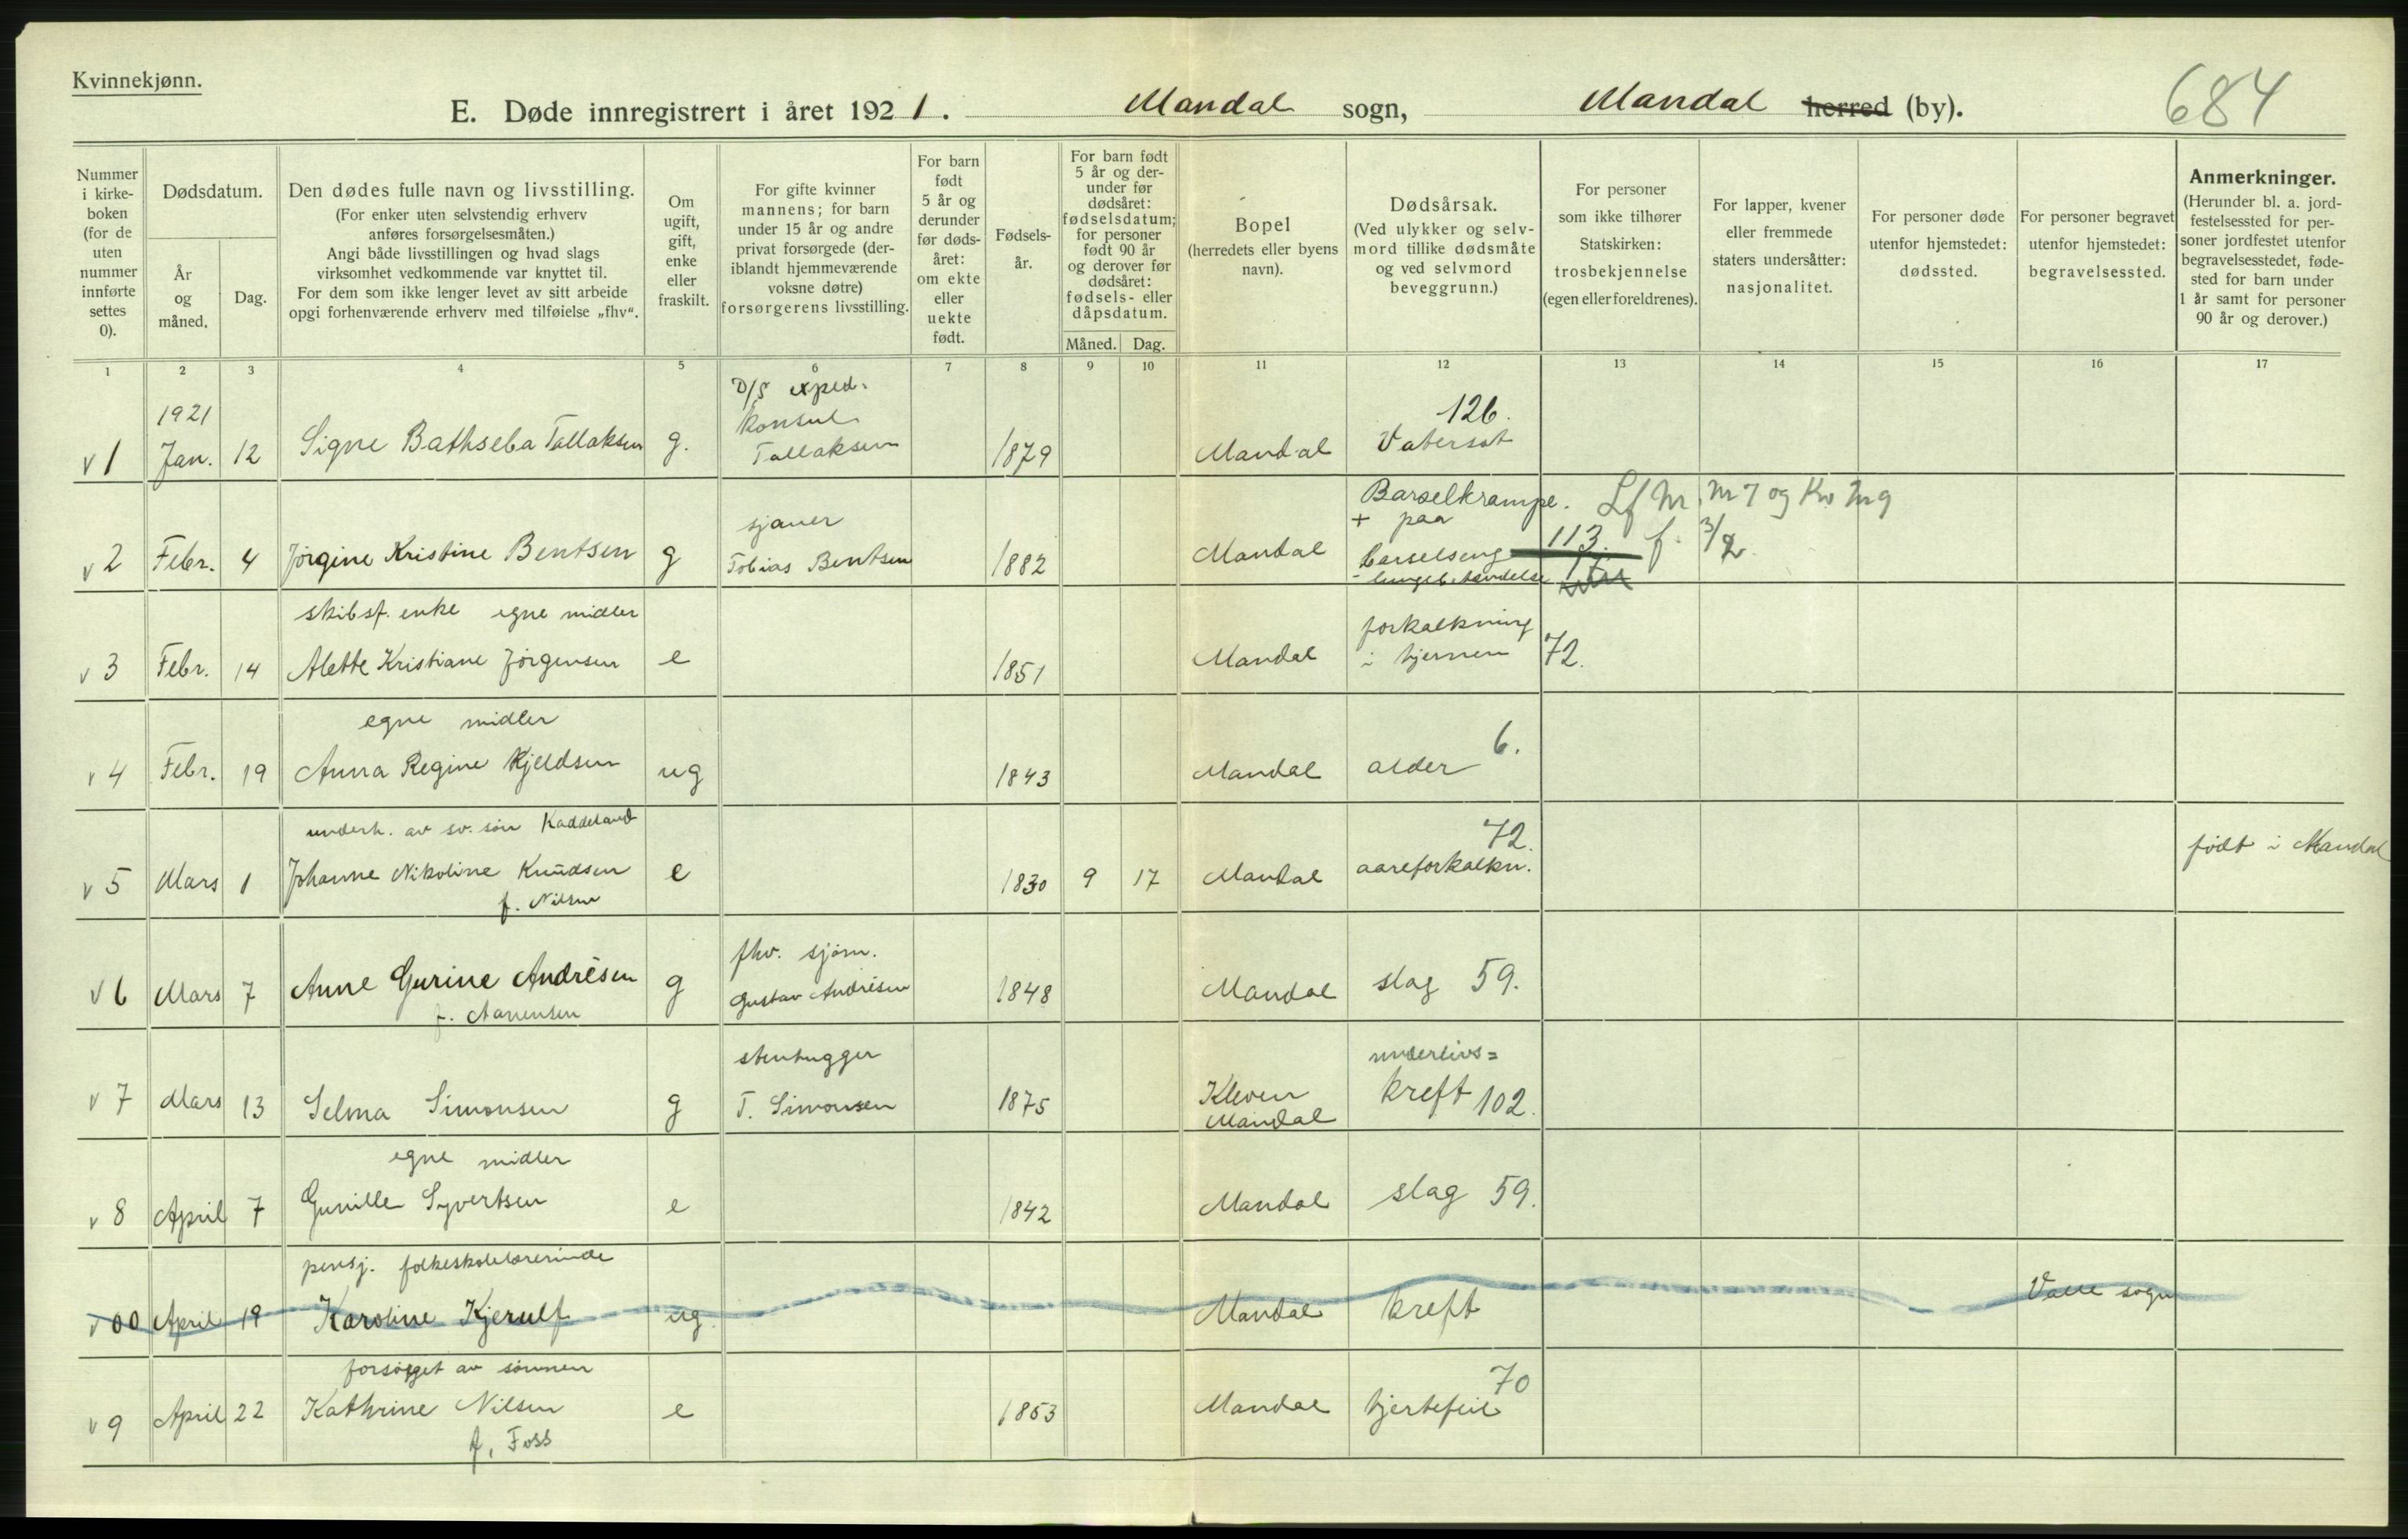 Kvinnekjønn.
684
E. Døde innregistrert i året 1921. Mandal sogn, Mandal herred (by).
Nummer i kirke-boken (for de uten nummer innførte settes 0).
Dødsdatum.
År og måned.
Dag.
Den dødes fulle navn og livsstilling.
(For enker uten selvstendig erhverv anføres forsørgelsesmåten.)
Angi både livsstillingen og hvad slags virksomhet vedkommende var knyttet til.
For dem som ikke lenger levet av sitt arbeide opgi forhenværende erhverv med tilføielse „fhv“.
Om ugift, gift, enke eller fraskilt.
For gifte kvinner mannens; for barn under 15 år og andre privat forsørgede (der-iblandt hjemmeværende voksne døtre) forsørgerens livsstilling.
For barn født 5 år og derunder før døds-året: om ekte eller uekte født.
Fødsels-år.
For barn født 5 år og der-under før dødsåret: fødselsdatum; for personer født 90 år og derover før dødsåret: fødsels- eller dåpsdatum.
Måned.
Dag.
Bopel
(herredets eller byens navn).
Dødsårsak.
(Ved ulykker og selv-mord tillike dødsmåte og ved selvmord beveggrunn.)
For personer som ikke tilhører Statskirken: trosbekjennelse (egen eller foreldrenes).
For lapper, kvener eller fremmede staters undersåtter: nasjonalitet.
For personer døde utenfor hjemstedet: dødssted.
For personer begravet utenfor hjemstedet: begravelsessted.
Anmerkninger.
(Herunder bl. a. jord-festelsessted for per-soner jordfestet utenfor begravelsesstedet, føde-sted for barn under 1 år samt for personer 90 år og derover.)
1 2 3 4 5 6 7 8 9 10 11 12 13 14 15 16 17
1921
D/S exped.
konsul
126.
v 1 Jan. 12 Signe Bathseba Tallaksen g. Tallaksen 1879 Mandal Vatersot
Barselkrampe. Lf M. Nr 7 og Kv. Nr 9
sjauer
+ paa
v 2 Febr. 4 Jörgine Kristine Bentsen g Tobias Bentsen 1882 Mandal barselseng 113. f. 3/2
- lungebetændelse
skibsf. enke egne midler
forkalkning
v 3 Febr. 14 Alette Kristiane Jörgensen e 1851 Mandal i hjernen 72.
egne midler
6.
v 4 Febr. 19 Anna Regine Kjeldsen ug 1843 Mandal alder
underh. av sv. sön Kaddeland
72.
v 5 Mars 1 Johanne Nikoline Knudsen e 1830 9 17 Mandal aareforkalkn. födt i Mandal
f. Nilsen
fhv. sjöm.
v 6 Mars 7 Anne Gurine Andrésen g Gustav Andrésen 1848 Mandal slag 59.
f. Aanensen
stenhugger
underlivs=
v 7 Mars 13 Selma Simonsen g T. Simonsen 1875 Kleven kreft 102.
Mandal
egne midler
v 8 April 7 Gunille Syvertsen e 1842 Mandal slag 59.
pensj. folkeskolelærerinde
v 00 April 19 Karoline Kjerulf ug Mandal kreft Valle sogn
forsörget av sönnen
70
v 9 April 22 Kathrine Nilsen e 1853 Mandal hjertefeil
f. Foss